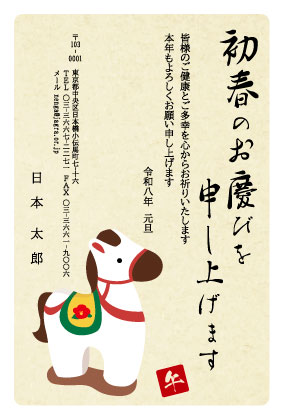 初春のお慶びを
申し上げます
皆様のご健康とご多幸を心からお祈りいたします
本年もよろしくお願い申し上げます
令和八年 元旦
〒103-0001
東京都中央区日本橋小伝馬町七-十六
TEL 〇三-三六六七-二二七一 FAX 〇三-三六六一-九〇〇六
メール nenga@jagra.or.jp
日本 太郎
午